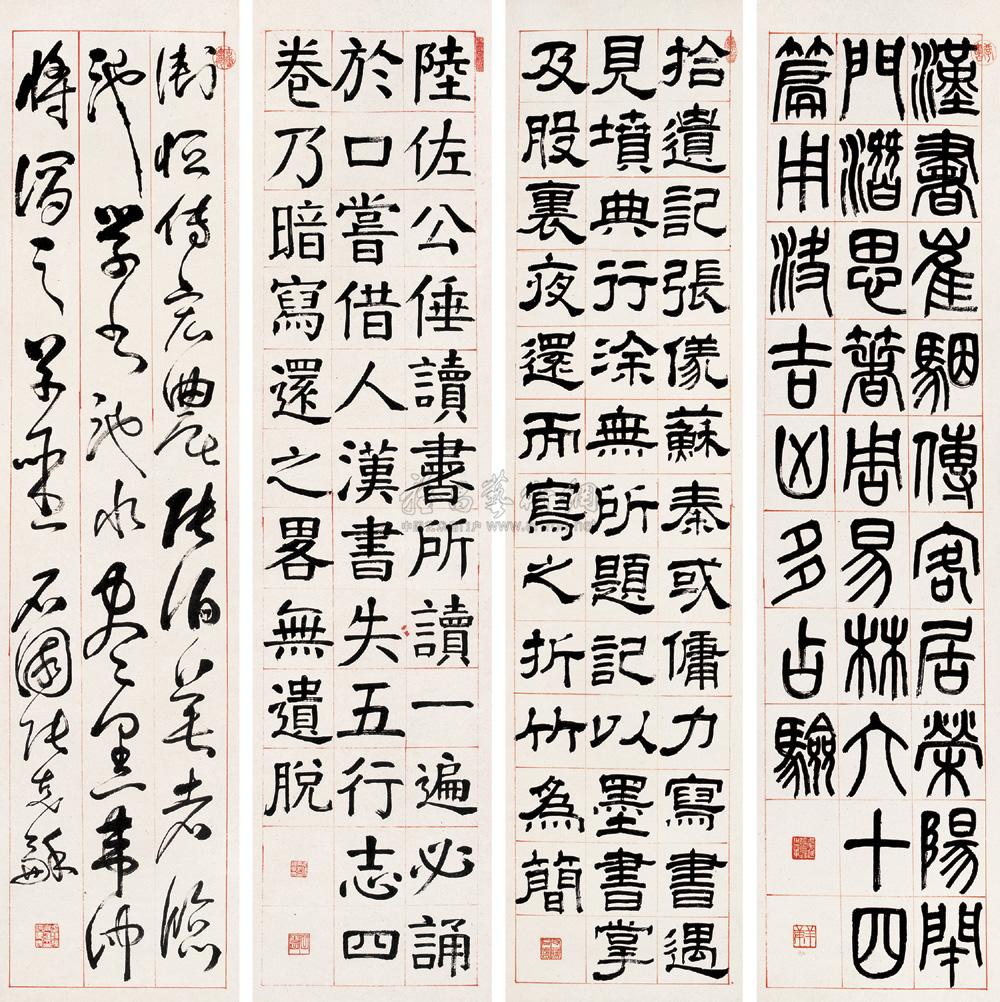 漢書崔駰傳客居榮陽閉
門潛思著周易林六十四
篇用決吉凶多占驗
拾遺記張儀蘇秦或傭力寫書遇
見墳典行涂無所題記以墨書掌
及股裏夜還而寫之折竹爲簡
陸佐公倕讀書所讀一遍必誦
於口嘗借人漢書失五行志四
卷乃暗寫還之畧無遺脫
衛恒傳宏農張伯英者臨
池學書池水盡黑韋仲
將謂之草聖 石園張克龢
雅昌藝術網